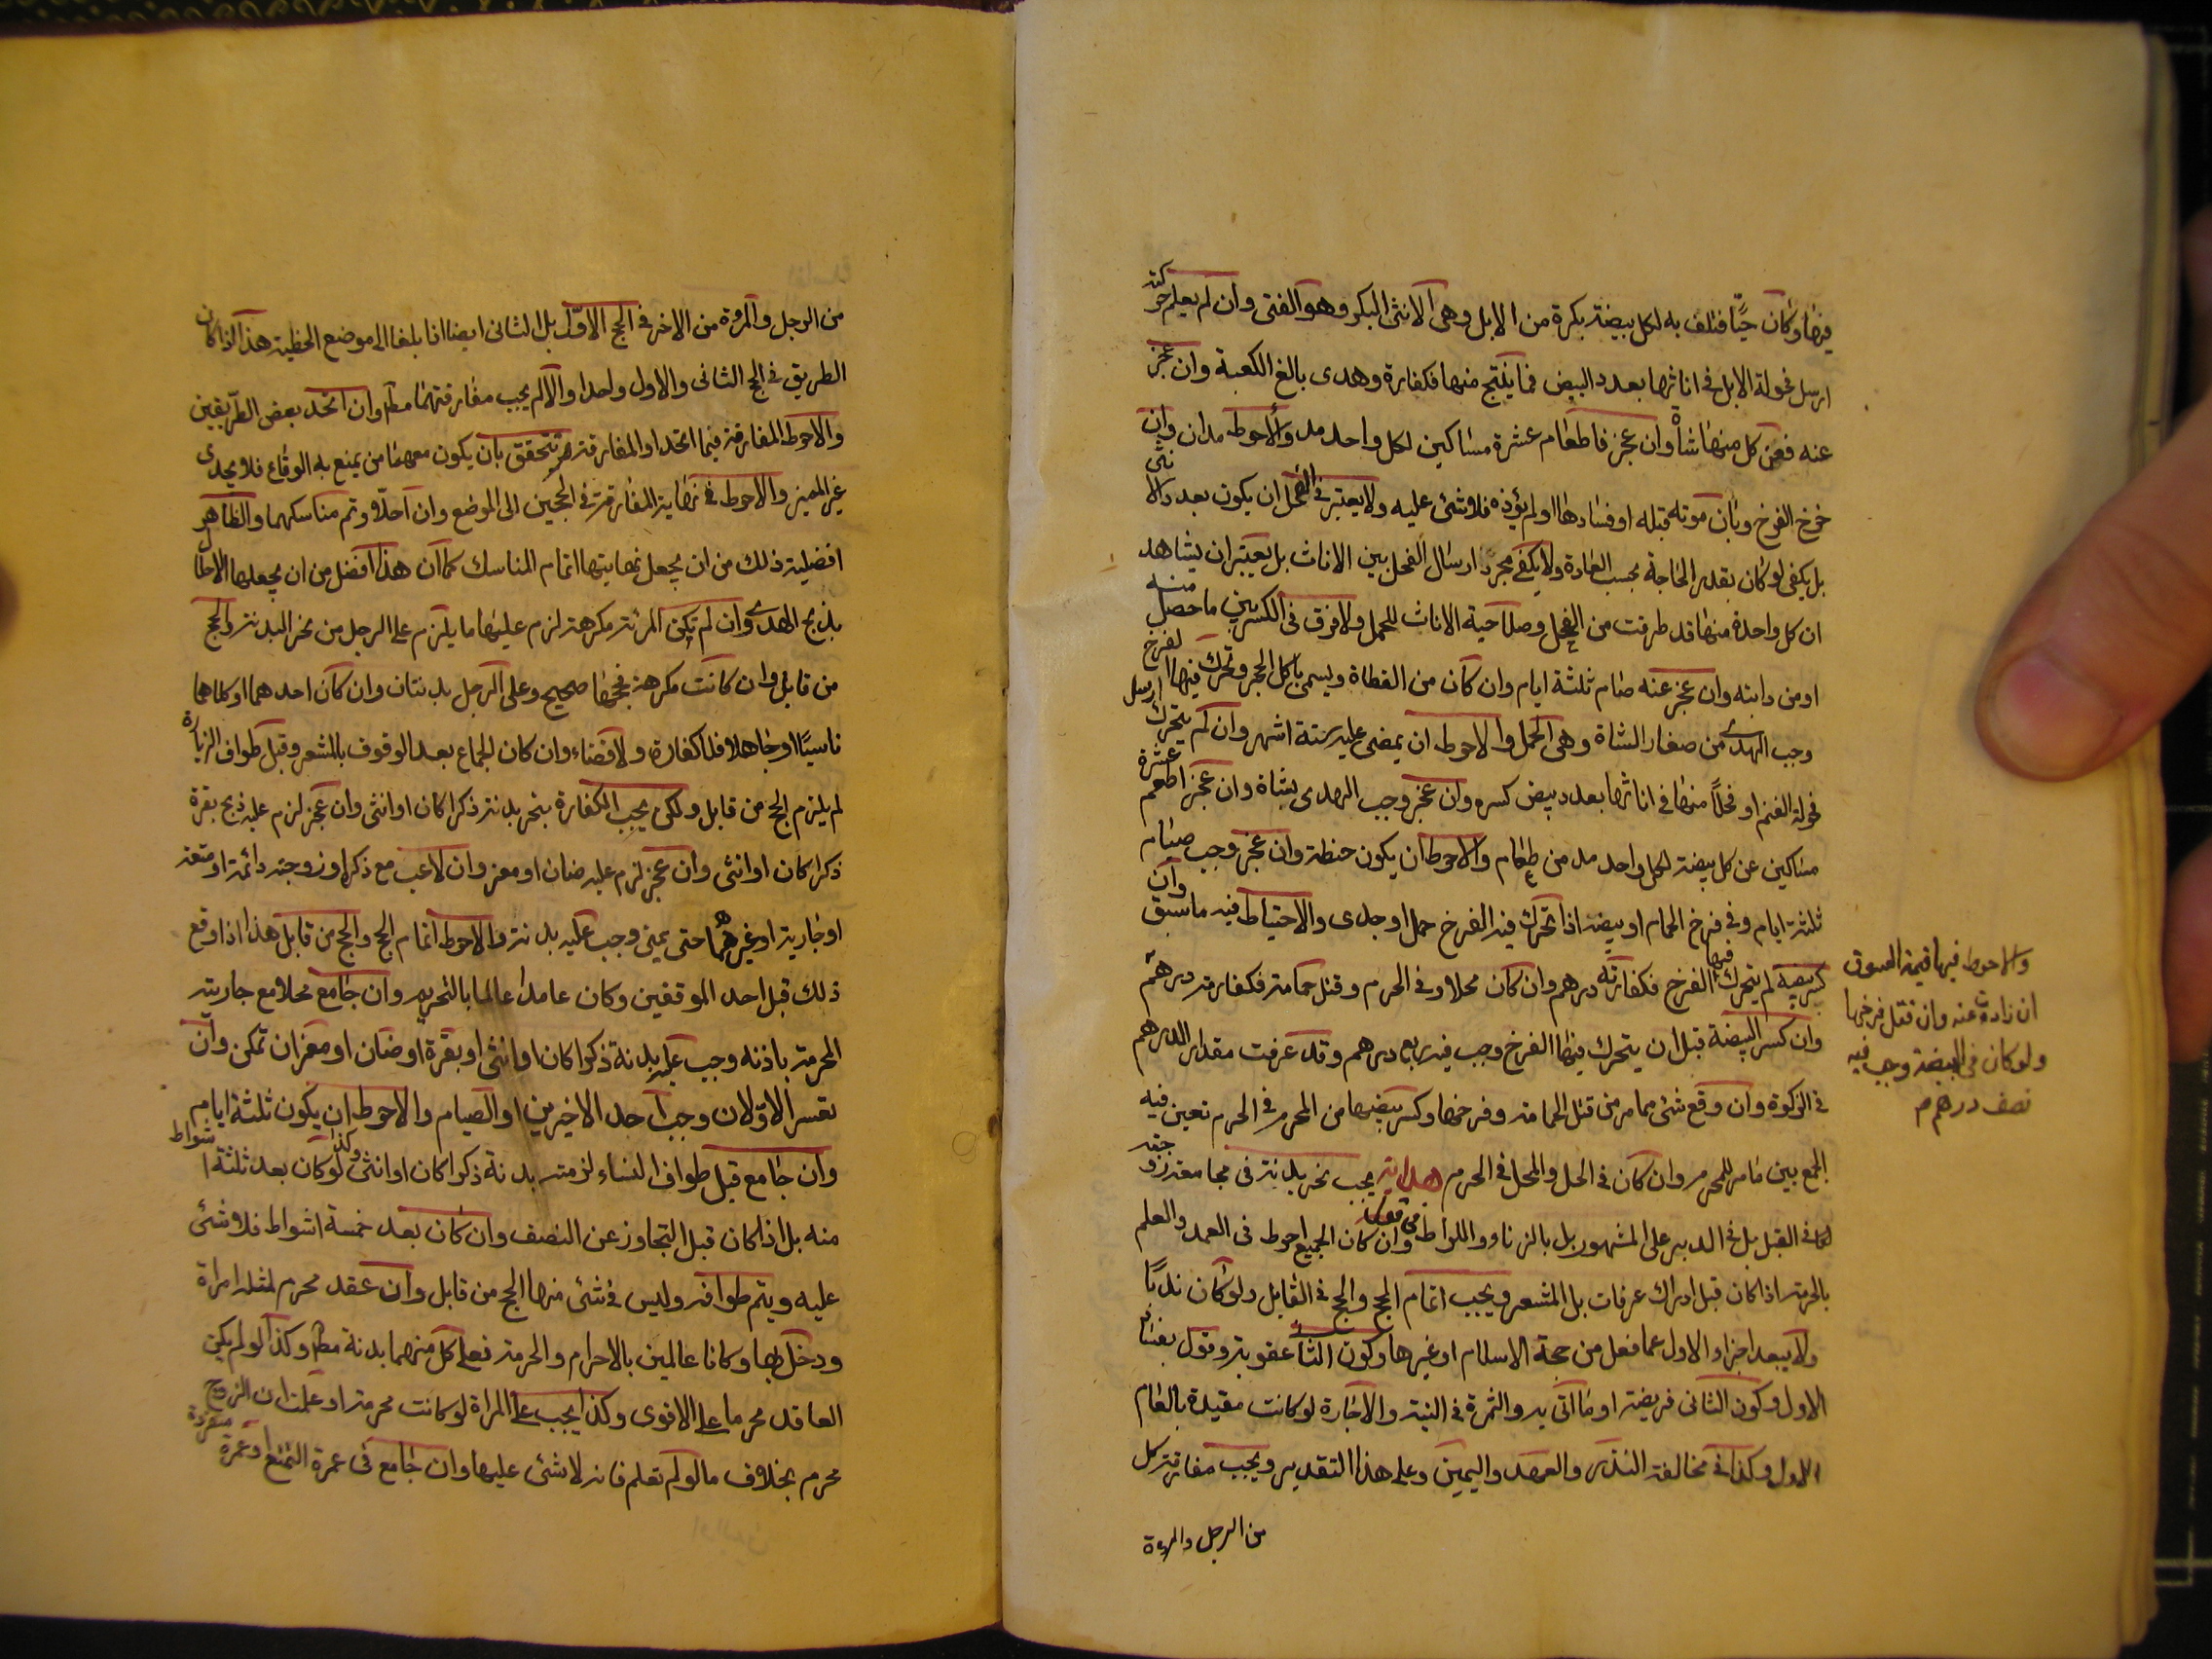 فيها وكان حيّا فتلف به لكل بيضة بكرة من الابل وهى الانثى البكر وهو الفتى وان لم يعلم حركته
ارسل فحولة الابل فى اناثها بعدد البيض فما ينتج منها فكفارة وهدى بالغ الكعبة وان عجز
عنه فعن كل منها شاة وان عجز فاطعام عشرة مساكين لكل واحد مد والاحوط مدان وان
خرج الفرخ وبان موته قبله او فسادها او لم يؤذه فلا شئ عليه ولا يعتبر فى الفحل ان يكون بعدد الانثى
بل يكفى لو كان بقدر الحاجة بحسب العادة ولا يكفى مجرد ارسال الفحل بين الاناث بل يعتبر ان يشاهد
ان كل واحدة منها قد طرقت من الفحل وصلاحية الاناث للحمل ولا فرق فى الكسر بين ما حصل منه
او من دابته وان عجز عنه صام ثلثة ايام وان كان من القطاة ويسمى باكل الحجر وتحرك فيها الفرخ
وجب الهدى من صغار الشاة وهى الحمل والاحوط ان يمضى عليه ستة اشهر وان لم يتحرك ارسل
فحولة الغنم او فحلاً منها فى اناثها بعدد بيض كسره وان عجز وجب الهدى بشاة وان عجز اطعم عشرة
مساكين عن كل بيضة لكل واحد مد من طعام والاحوط ان يكون حنطة وان عجز وجب صيام
ثلثة ايام وفى فرخ الحمام او بيضة اذا تحرك فيه الفرخ حمل او جدى والاحتياط فيه ما سبق وان
كسر بيضة لم يتحرك فيها الفرخ فكفارته درهم وان كان محلا وفى الحرم وقتل حمامة فكفارته درهم
وان كسر البيضة قبل ان يتحرك فيها الفرخ وجب فيه ربع درهم وقد عرفت مقدار الدرهم
فى الزكوة وان وقع شئ مما مر من قتل الحمامة وفرخها وكسر بيضها من المحرم فى الحرم تعين فيه
الجمع بين ما مر للمحرم وان كان فى الحل والمحل فى الحرم هداية يجب نحر بدنة فى مجامعة زوجته
فى القبل بل فى الدبر على المشهور بل بالزناء واللواط وان كان الجميع احوط فى العمد والعلم
بالحرمة اذا كان قبل ادراك عرفات بل المشعر ويجب اتمام الحج والحج فى القابل ولو كان ندبًا
ولا يبعد اجزاء الاول عما فعل من حجة الاسلام او غيرها وكون الثانى عقوبة وقول بفساد
الاول وكون الثانى فريضة او ما اتى به والثمرة فى النية والاجارة لو كانت مقيدة بالعام
الاول وكذا فى مخالفة النذر والعهد واليمين وعلى هذا التقدير ويجب مفارقة كل
من الرجل والمرءة
والاحوط فيها قيمة السوق
ان زادت عنه وان قتل فرخها
ولو كان فى البيضة وجب فيه
نصف درهم م
من الرجل والمروة من الاخر فى الحج الاوّل بل الثانى ايضا اذا بلغا الى موضع الخطيئة هذا اذا كان
الطريق فى الحج الثانى والاول واحدا والا لم يجب مفارقتهما مط وان اتحد بعض الطريقين
والاحوط المفارقة فيما اتحدا والمفارقة تتحقق بان يكون معهما من يمنع به الوقاع فلا يجدى
غير المميز والاحوط فى نهاية المفارقة فى الحجين الى الموضع وان احلّا وتم مناسكهما والظاهر
افضلية ذلك من ان يجعل نهايتها اتمام المناسك كما ان هذا افضل من ان يجعلها الاحلال
بذبح الهدى وان لم تكن المرئة مكرهة لزم عليها ما يلزم على الرجل من نحر البدنة والحج
من قابل وان كانت مكرهة فحجها صحيح وعلى الرجل بدنتان وان كان احدهما او كلاهما
ناسيًا او جاهلا فلا كفارة ولا قضاء وان كان الجماع بعد الوقوف بالمشعر وقبل طواف الزيارة
لم يلزم الحج من قابل ولكن يجب الكفارة بنحر بدنة ذكرا كان او انثى وان عجز لزم عليه ذبح بقرة
ذكرا كان او انثى وان عجز لزم عليه ضان او معز وان لاعب مع ذكر او زوجته دائمة او متعة
او جارية او غيرهما حتى يمنى وجب عليه بدنة والاحوط اتمام الحج والحج من قابل هذا اذا وقع
ذلك قبل احد الموقفين وكان عامدا عالما بالتحريم وان جامع محلا مع جاريته
المحرمة باذنه وجب عليه بدنة ذكرا كان او انثى او بقرة او ضان او معز ان تمكن وان
تعسر الاوّلان وجب احد الاخيرين او الصيام والاحوط ان يكون ثلثة ايام
وان جامع قبل طواف النساء لزمته بدنة ذكرا كان او انثى وكذا لو كان بعد ثلثة اشواط
منه بل اذا كان قبل التجاوز عن النصف وان كان بعد خمسة اشواط فلا شئ
عليه ويتم طوافه وليس فى شئ منها الحج من قابل وان عقد محرم لمثله امراة
ودخل بها وكانا عالمين بالاحرام والحرمة فعلى كل منهما بدنة مط وكذا لو لم يكن
العاقد محرما على الاقوى وكذا يجب على المراة لو كانت محرمة او علمت ان الزوج
محرم بخلاف ما لو لم تعلم فانه لا شئ عليها وان جامع فى عمرة التمتع او عمرة مفردة